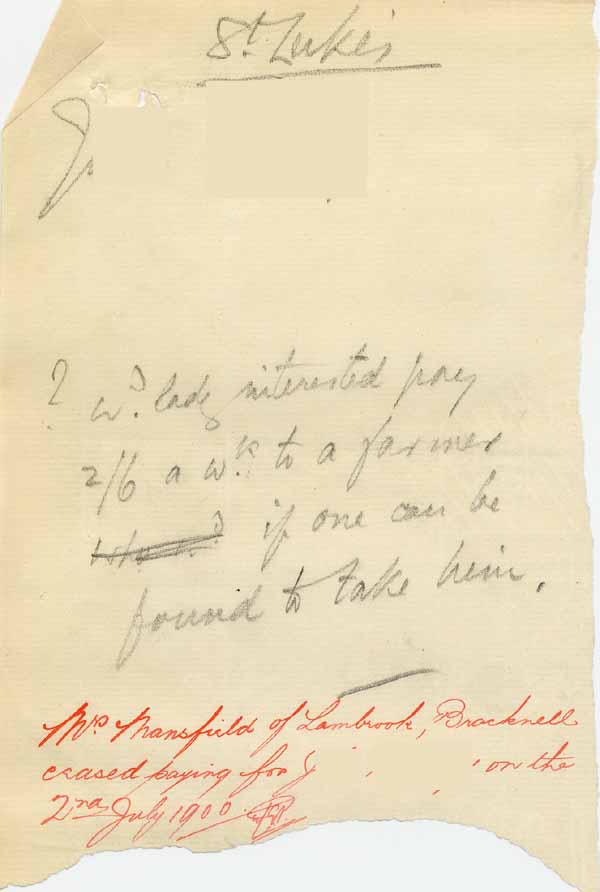 St. Luke's
J
? wd. lady interested pay
2/6 a wk. to a farmer
if one can be
found to take him.
Mrs Mansfield of Lambrook, Bracknell
ceased paying for J on the
2nd July 1900